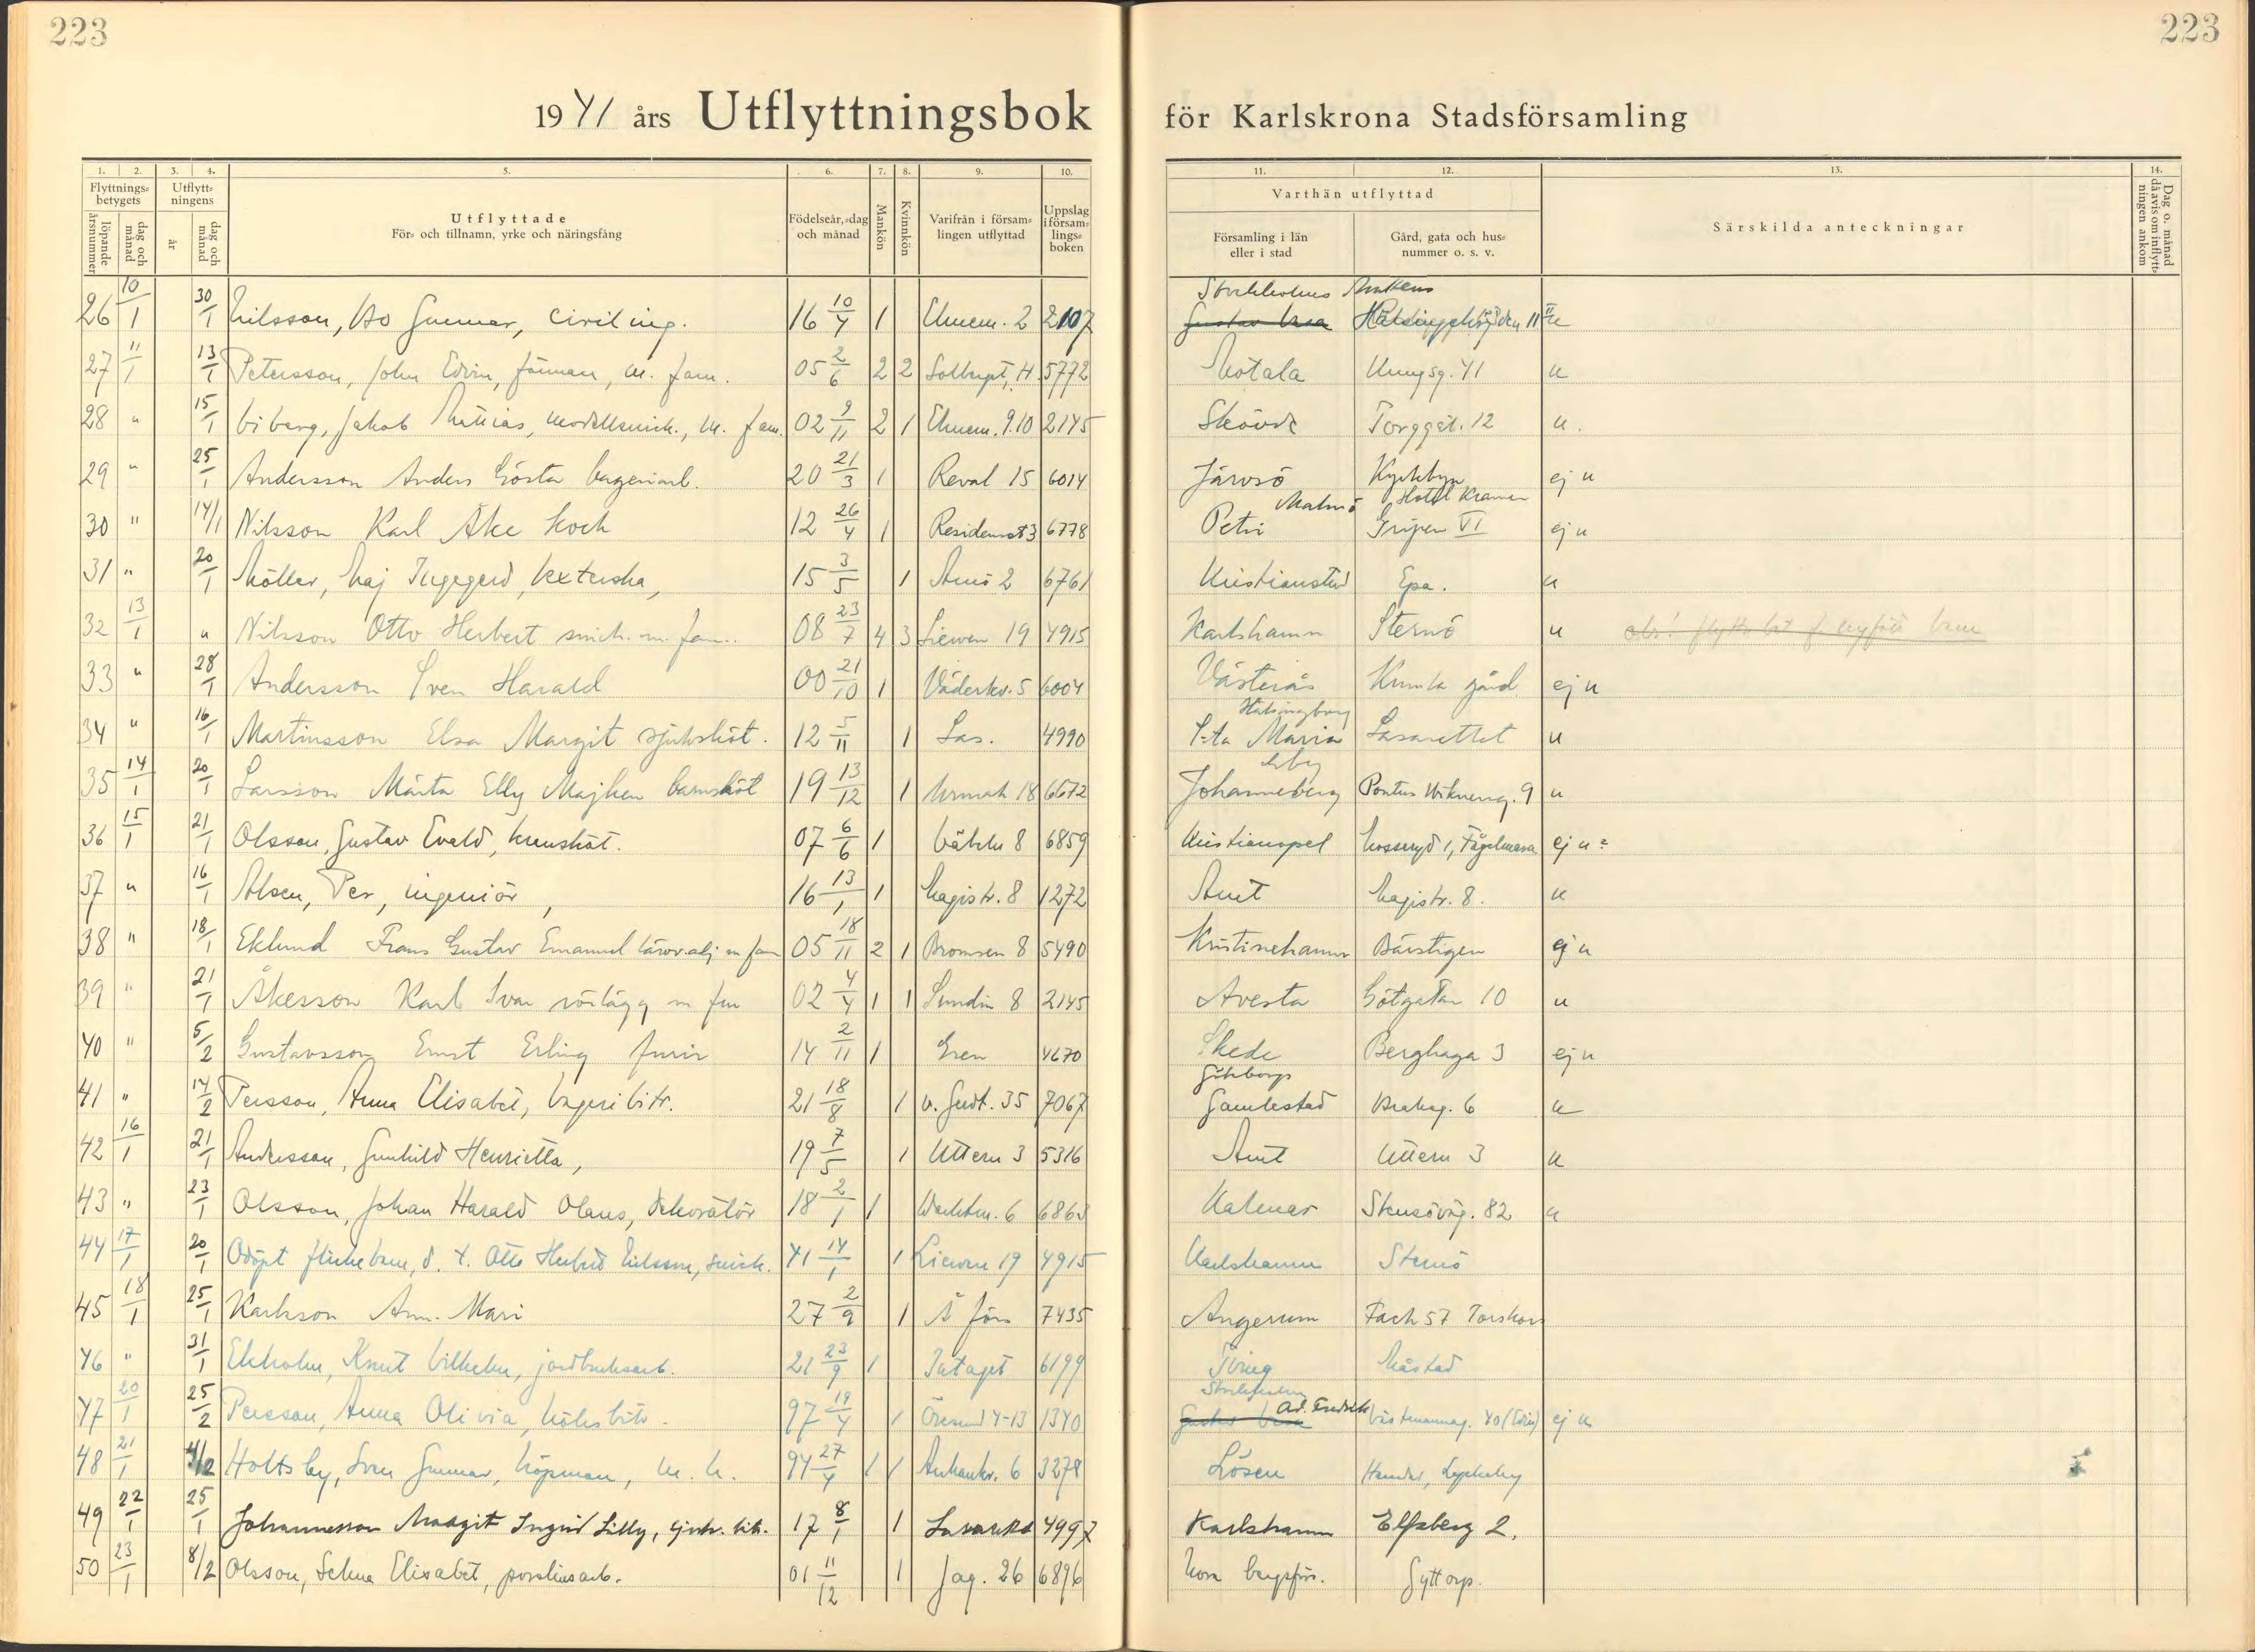 223
223
1941 års Utflyttningsbok för Karlskrona Stadsförsamling
1. 2. 3. 4. 5. 6. 7. 8. 9. 10. 11. 12. 13. 14.
Flyttnings-betygets
löpande årsnummer
dag och månad
Utflytt-ningens
år
dag och månad
Utflyttade
För- och tillnamn, yrke och näringsfång
Födelseår, -dag och månad
Mankön
Kvinnkön
Varifrån i försam-lingen utflyttad
Uppslag i försam-lings-boken
Varthän utflyttad
Församling i län eller i stad
Gård, gata och hus-nummer o. s. v.
Särskilda anteckningar
Dag o. månad då avis om inflytt-ningen ankom
Stockholms
26 10/1 30/1 Nilsson, Bo Gunnar, civiling. 16 10/4 1 2 2107 Gustav Vasa
27 11/1 13/1 Petersson, John Edvin, förman, m. fam. 05 2/6 2 2 5772 Motala Kungsg. 41 u
28 " 15/1 Viberg, Jakob Mattias, modellsnick., m. fam. 02 9/11 2 1 9.10 2145 Skövde Torggat. 12 u.
29 " 25/1 Andersson Anders Gösta bageriarb. 20 21/3 1 Reval 15 6014 Järvsö Kyrkbyn ej u
Malmö Hotel Kramer
30 " 14/1 Nilsson Karl Åke kock 12 26/4 1 Residenset 3 6778 Petri Gripen VI ej u
31 " 20/1 Möller, Maj Ingegerd, kexterska, 15 3/5 1 Arnö 2 6761 Kristianstad Epa. u
32 13/1 " Nilsson Otto Herbert snick. m. fam. 08 23/7 4 3 Liewen 19 4915 Karlshamn Sternö u
33 " 28/1 Andersson Sven Harald 00 21/10 1 Väderkv. 5 6004 Västerås Kumla gård ej u
Hälsingborg
34 " 16/1 Martinsson Elsa Margit sjuksköt. 12 5/11 1 Las. 4990 S:ta Maria Lasarettet u
Gbg
35 14/1 20/1 Larsson Märta Elly Majken barnsköt 19 13/12 1 18 6672 Johanneberg Pontus Wiknersg. 9 u
36 15/1 21/1 Olsson, Gustav Evald, hemsköt. 07 6/6 1 8 6859 Kristianopel 1, Fågelmara ej u
37 " 16/1 Olsen, Per, ingeniör, 16 13/1 1 Magistr. 8 1272 Amt Magistr. 8. u
38 " 18/1 Eklund Frans Gustav Emanuel lärov.adj m fam 05 18/11 2 1 Bromsen 8 5490 Kristinehamn Bävstigen ej u
39 " 21/1 Åkesson Karl Ivar rörlägg m fam 02 4/4 1 1 Sundin 8 2145 Avesta Götgatan 10 u
40 " 5/2 Gustavsson Ernst Erling furir 14 2/11 1 Gren 4670 Skede Berghaga 3 ej u
Göteborgs
41 " 14/2 Persson, Anna Elisabet, bageribitr. 21 18/8 1 35 7067 Gamlestad Braheg. 6 u
42 16/1 21/1 Andersson, Gunhild Henrietta, 19 7/5 1 Uttern 3 5316 Amt Uttern 3 u
43 " 23/1 Olsson, Johan Harald Olaus, dekoratör 18 2/1 1 Wachtm. 6 6863 Kalmar Stensöväg. 82 u
44 17/1 20/1 Odöpt flickebarn, d. t. Otto Herbert Nilsson, snick. 41 14/1 1 Liewen 19 4915 Karlshamn Sternö
45 18/1 25/1 Karlsson Ann-Mari 27 2/9 1 Å förs 7435 Angerum Fack 57 Torskors
46 " 31/1 Ekholm, Knut Vilhelm, jordbruksarb. 21 23/9 1 Intaget 6199 Tving Måstad
Stockholm
47 20/1 25/2 Persson, Anna Olivia, köksbitr. 97 19/4 1 Öresund 4-13 1340 Gustav Vasa Ad. Fredrik Västmannag. 40 ej u
48 21/1 4/2 Holtsby, Sven Gunnar, köpman, m. h. 94 27/4 1 1 Ankarkr. 6 3278 Lösen Lyckeby
49 22/1 25/1 Johannesson Margit Ingrid Lilly, sjukv. bitr. 17 8/1 1 Lasarett 4997 Karlshamn Elfsberg 2.
50 23/1 8/2 Olsson, Selma Elisabet, porslinsarb. 01 11/12 1 Jag. 26 6896 Nora bergsförs. Gyttorp.